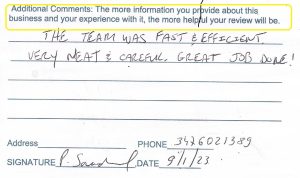 Additional Comments: The more information you provide about this
business and your experience with it, the more helpful your review will be.
THE TEAM WAS FAST & EFFICIENT.
VERY NEAT & CAREFUL. GREAT JOB DONE!
Address PHONE 3476021389
SIGNATURE P. DATE 9/1/23